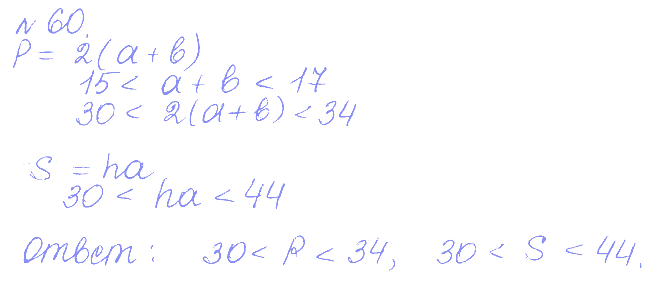 N 60.
P = 2(a + b)
15 < a + b < 17
30 < 2(a + b) < 34
S = ha
30 < ha < 44
Ответ: 30 < P < 34, 30 < S < 44.